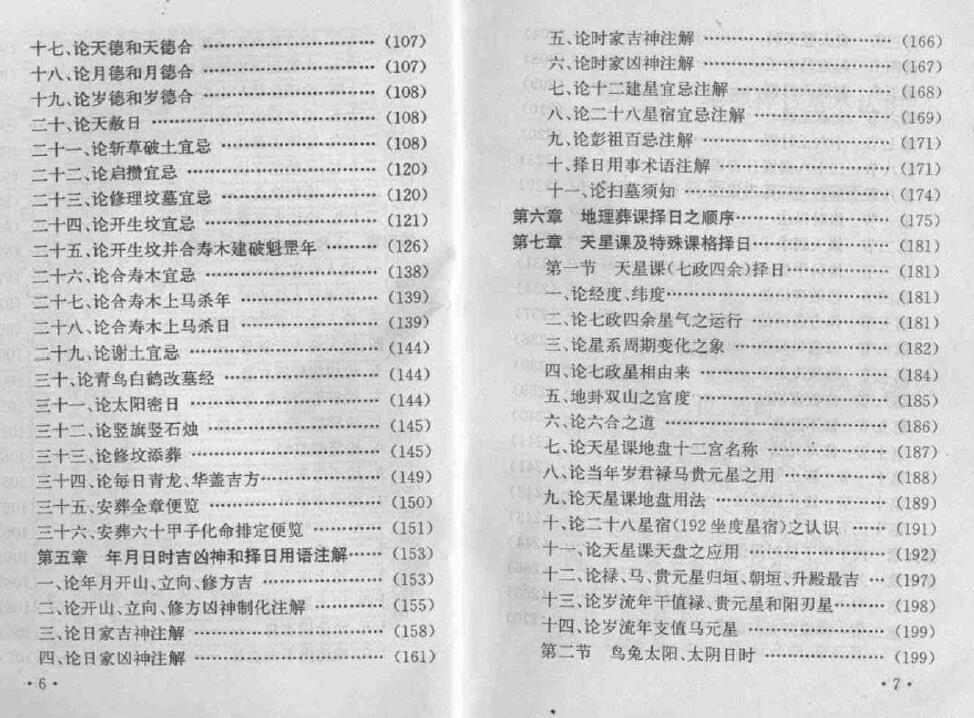 十七、论天德和天德合 ……………………… (107)
十八、论月德和月德合 ……………………… (107)
十九、论岁德和岁德合 ……………………… (108)
二十、论天赦日 ……………………… (108)
二十一、论斩草破土宜忌 ……………………… (108)
二十二、论启攒宜忌 ……………………… (120)
二十三、论修理坟墓宜忌 ……………………… (120)
二十四、论开生坟宜忌 ……………………… (121)
二十五、论开生坟并合寿木建破魁罡年 ………… (126)
二十六、论合寿木宜忌 ……………………… (138)
二十七、论合寿木上马杀年 ……………………… (139)
二十八、论合寿木上马杀日 ……………………… (139)
二十九、论谢土宜忌 ……………………… (144)
三十、论青鸟白鹤改墓经 ……………………… (144)
三十一、论太阳密日 ……………………… (144)
三十二、论竖旗竖石烛 ……………………… (145)
三十三、论修坟添葬 ……………………… (145)
三十四、论每日青龙、华盖吉方 ……………… (149)
三十五、安葬全章便览 ……………………… (150)
三十六、安葬六十甲子化命排定便览 ………… (151)
第五章 年月日时吉凶神和择日用语注解 …… (153)
一、论年月开山、立向、修方吉 ……………… (153)
二、论开山、立向、修方凶神制化注解 ……… (155)
三、论日家吉神注解 ……………………… (158)
四、论日家凶神注解 ……………………… (161)
· 6 ·
五、论时家吉神注解 ……………………… (166)
六、论时家凶神注解 ……………………… (167)
七、论十二建星宜忌注解 ……………………… (168)
八、论二十八星宿宜忌注解 ……………………… (169)
九、论彭祖百忌注解 ……………………… (171)
十、择日用事术语注解 ……………………… (171)
十一、论扫墓须知 ……………………… (174)
第六章 地理葬课择日之顺序 ……………… (175)
第七章 天星课及特殊课格择日 ……………… (181)
第一节 天星课(七政四余)择日 ……………… (181)
一、论经度、纬度 ……………………… (181)
二、论七政四余星气之运行 ……………… (181)
三、论星系周期变化之象 ……………………… (182)
四、论七政星相由来 ……………………… (184)
五、地卦双山之宫度 ……………………… (185)
六、论六合之道 ……………………… (186)
七、论天星课地盘十二宫名称 ……………… (187)
八、论当年岁君禄马贵元星之用 ……………… (188)
九、论天星课地盘用法 ……………………… (189)
十、论二十八星宿(192坐度星宿)之认识 …… (191)
十一、论天星课天盘之应用 ……………… (192)
十二、论禄、马、贵元星归垣、朝垣、升殿最吉 … (197)
十三、论岁流年干值禄、贵元星和阳刃星 …… (198)
十四、论岁流年支值马元星 ……………… (199)
第二节 鸟兔太阳、太阴日时 ……………… (199)
· 7 ·